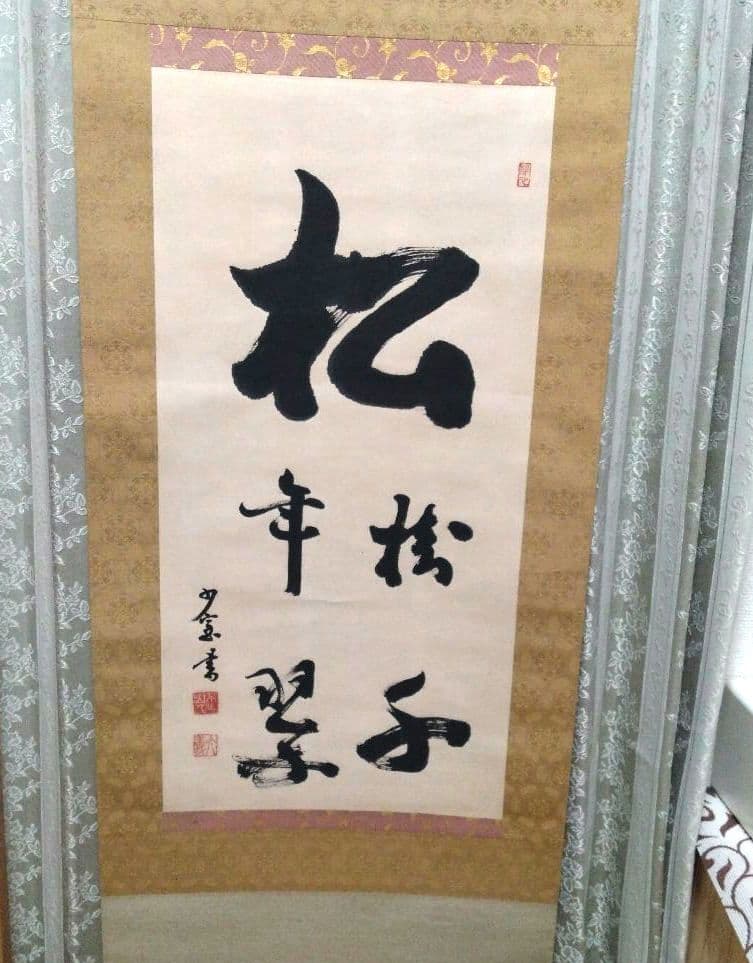 松
樹千
年翠
書